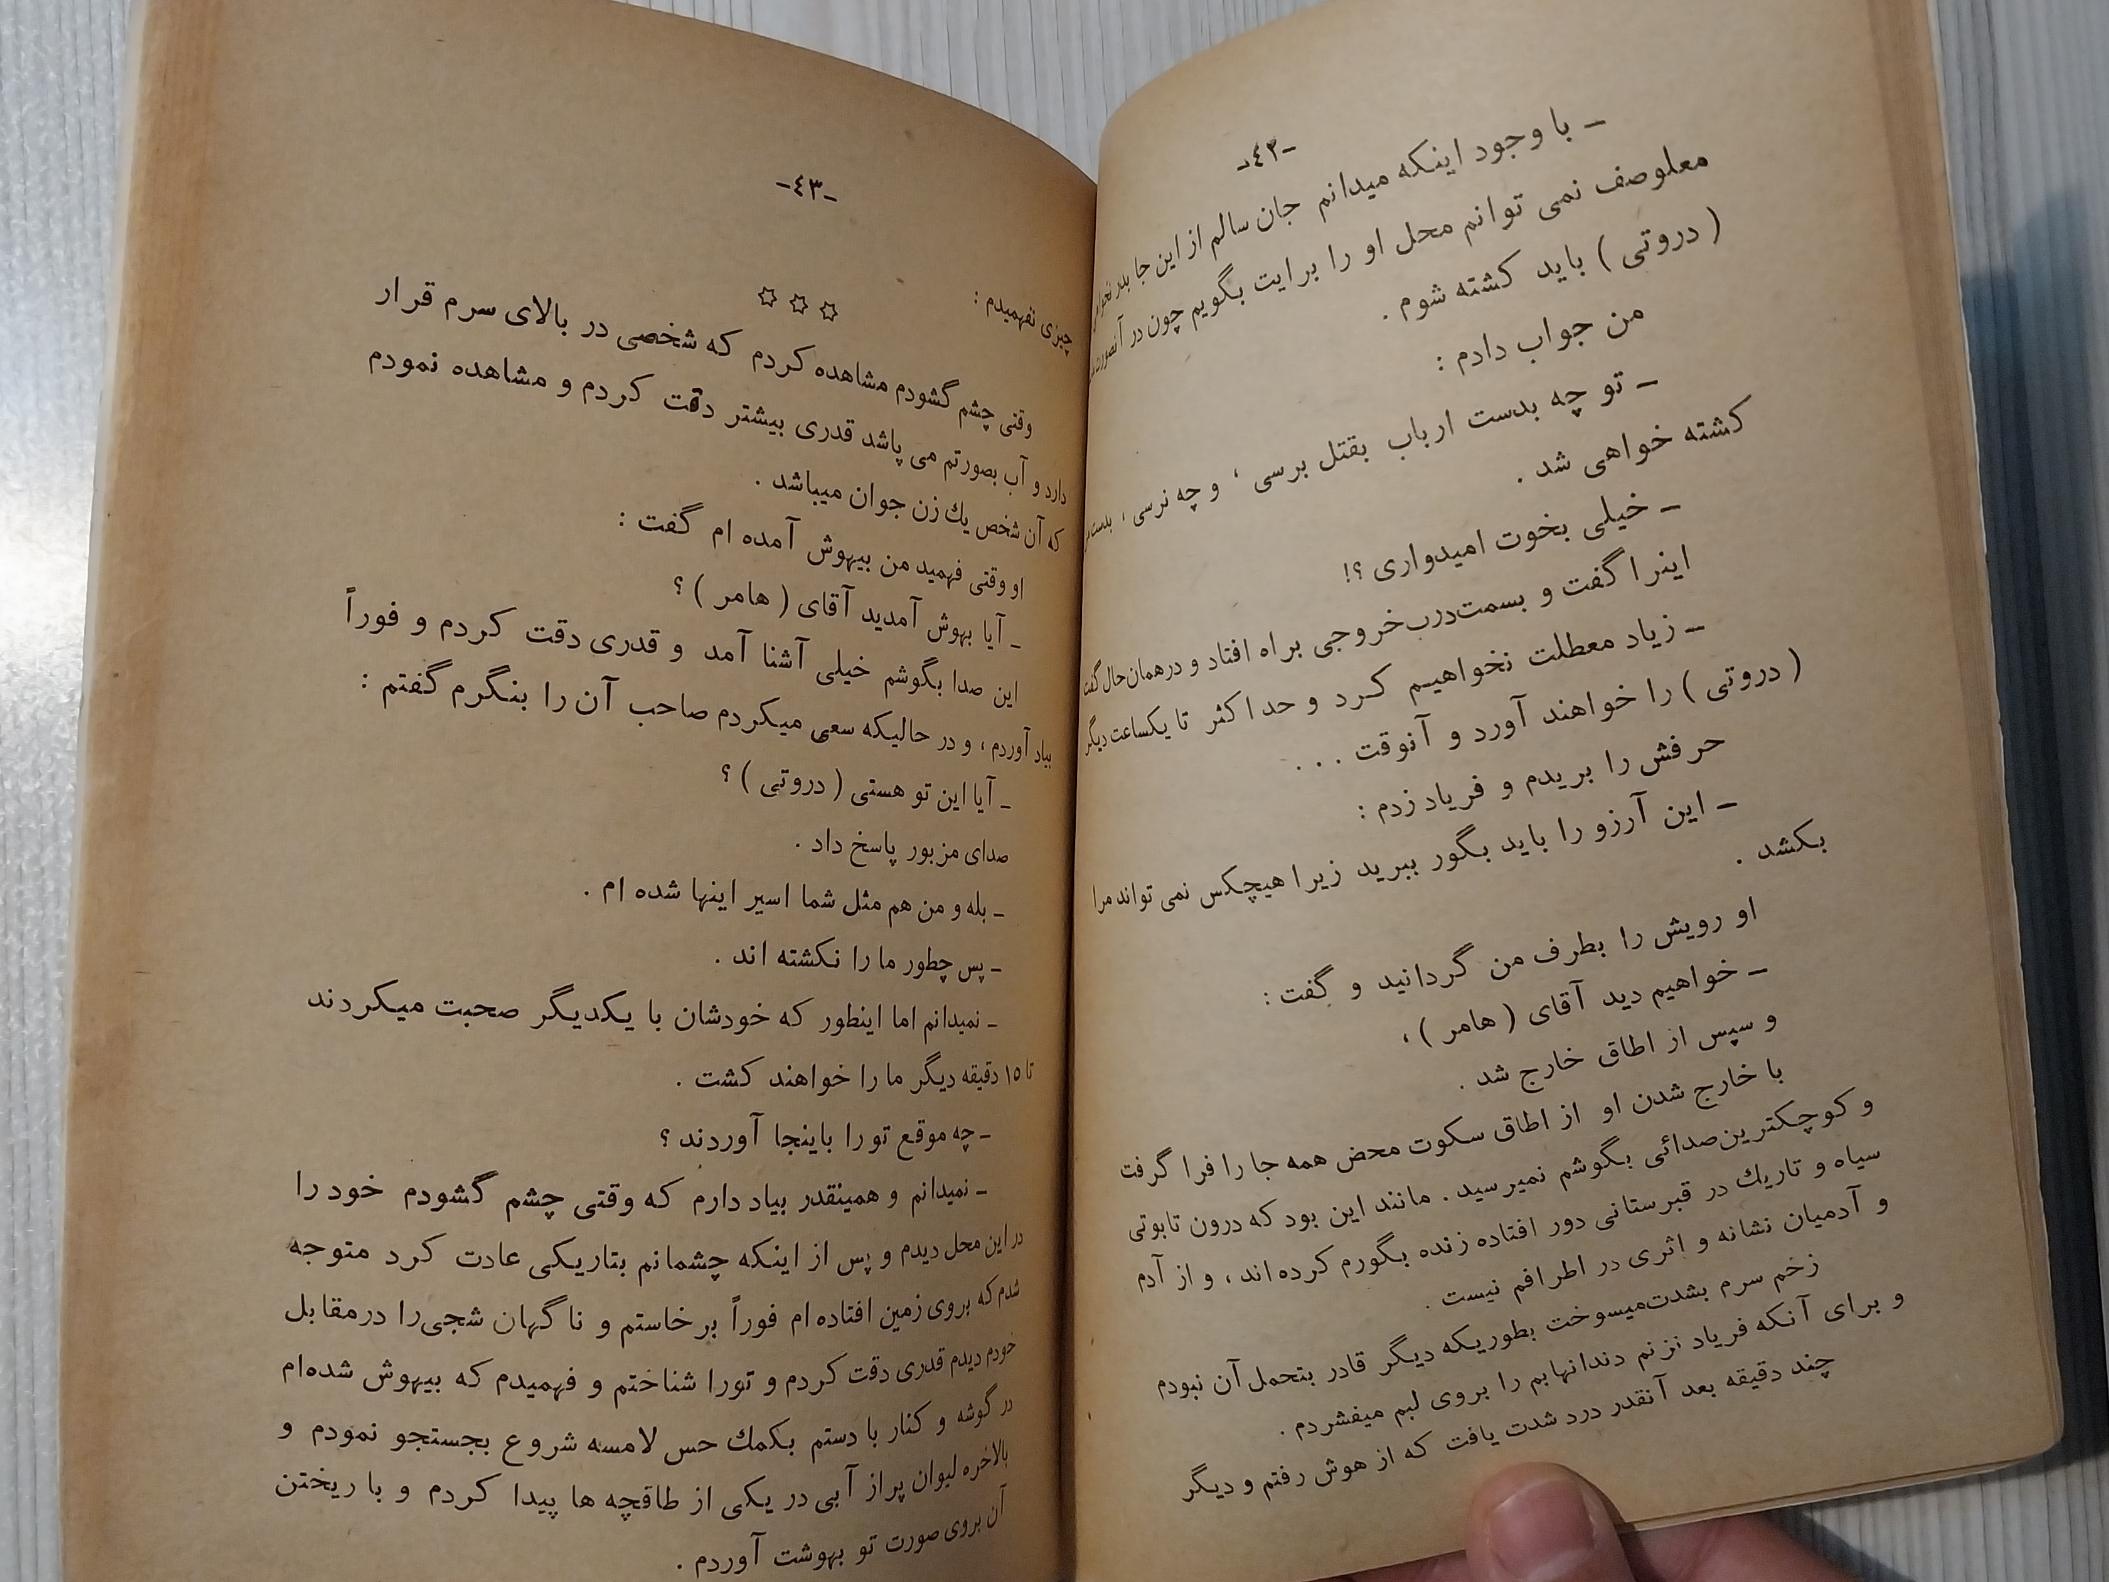 -٤٢-
ـ با وجود اینکه میدانم جان سالم از این جا بدر
معلوصف نمی توانم محل او را برایت بگویم چون در آنصورت
( دروتی ) باید کشته شوم .
من جواب دادم :
ـ تو چه بدست ارباب بقتل برسی ، و چه نرسی ، بدست
کشته خواهی شد .
ـ خیلی بخوت امیدواری ؟!
اینرا گفت و بسمت‌درب‌خروجی براه افتاد و درهمان‌حال گفت
ـ زیاد معطلت نخواهیم کرد و حداکثر تا یکساعت دیگر
( دروتی ) را خواهند آورد و آنوقت . . .
حرفش را بریدم و فریاد زدم :
ـ این آرزو را باید بگور ببرید زیرا هیچکس نمی تواند مرا
بکشد .
او رویش را بطرف من گردانید و گفت :
ـ خواهیم دید آقای ( هامر ) ،
و سپس از اطاق خارج شد .
با خارج شدن او از اطاق سکوت محض همه جا را فرا گرفت
و کوچکترین‌صدائی بگوشم نمیرسید . مانند این بود که درون تابوتی
سیاه و تاریك در قبرستانی دور افتاده زنده بگورم کرده‌اند ، و از آدم
و آدمیان نشانه و اثری در اطرافم نیست .
زخم سرم بشدت‌میسوخت بطوریکه دیگر قادر بتحمل آن نبودم
و برای آنکه فریاد نزنم دندانهایم را بروی لبم میفشردم .
چند دقیقه بعد آنقدر درد شدت یافت که از هوش رفتم و دیگر
-٤٣-
چیزی نفهمیدم :
✡ ✡ ✡
وقتی چشم گشودم مشاهده کردم که شخصی در بالای سرم قرار
دارد و آب بصورتم می پاشد قدری بیشتر دقت کردم و مشاهده نمودم
که آن شخص یك زن جوان میباشد .
او وقتی فهمید من بیهوش آمده ام گفت :
ـ آیا بهوش آمدید آقای ( هامر ) ؟
این صدا بگوشم خیلی آشنا آمد و قدری دقت کردم و فوراً
بیاد آوردم ، و در حالیکه سعی میکردم صاحب آن را بنگرم گفتم :
ـ آیا این تو هستی ( دروتی ) ؟
صدای مزبور پاسخ داد .
ـ بله و من هم مثل شما اسیر اینها شده ام .
ـ پس چطور ما را نکشته اند .
ـ نمیدانم اما اینطور که خودشان با یکدیگر صحبت میکردند
تا ۱٥ دقیقه دیگر ما را خواهند کشت .
ـ چه موقع تو را باینجا آوردند ؟
ـ نمیدانم و همینقدر بیاد دارم که وقتی چشم گشودم خود را
در این محل دیدم و پس از اینکه چشمانم بتاریکی عادت کرد متوجه
شدم که بروی زمین افتاده ام فوراً برخاستم و ناگهان شجی‌را درمقابل
خودم دیدم قدری دقت کردم و تورا شناختم و فهمیدم که بیهوش شده‌ام
در گوشه و کنار با دستم بکمك حس لامسه شروع بجستجو نمودم و
بالاخره لیوان پراز آبی در یکی از طاقچه ها پیدا کردم و با ریختن
آن بروی صورت تو بهوشت آوردم .